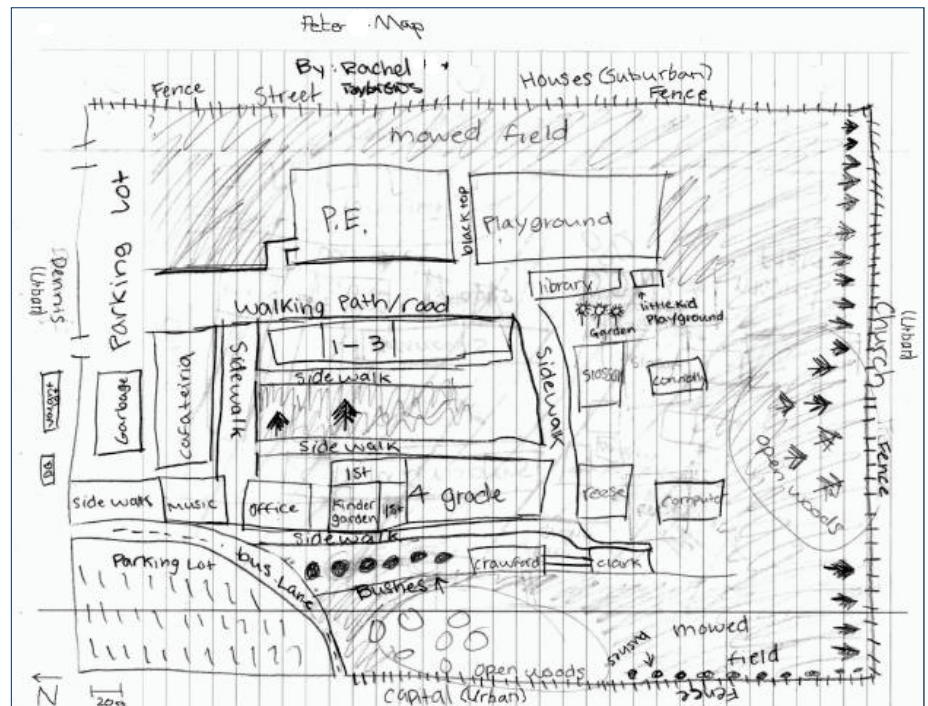 Peter Map
By: Rachel
Fence
Street
Houses (Suburban)
Fence
mowed field
Parking Lot
P.E.
black top
Playground
Dennis
(Urban)
library
little kid
Playground
Garden
walking path/road
1-3
Sidewalk
Sidewalk
side walk
side walk
Garbage
cafateiria
Slosson
connolly
Church
(Urban)
Fence
open woods
side walk
music
office
1st
Kinder
garden
1st
4 grade
reese
computer
sidewalk
Parking Lot
bus Lane
Bushes
crawford
clark
Bushes
mowed
field
open woods
Capital (Urban)
Fence
N